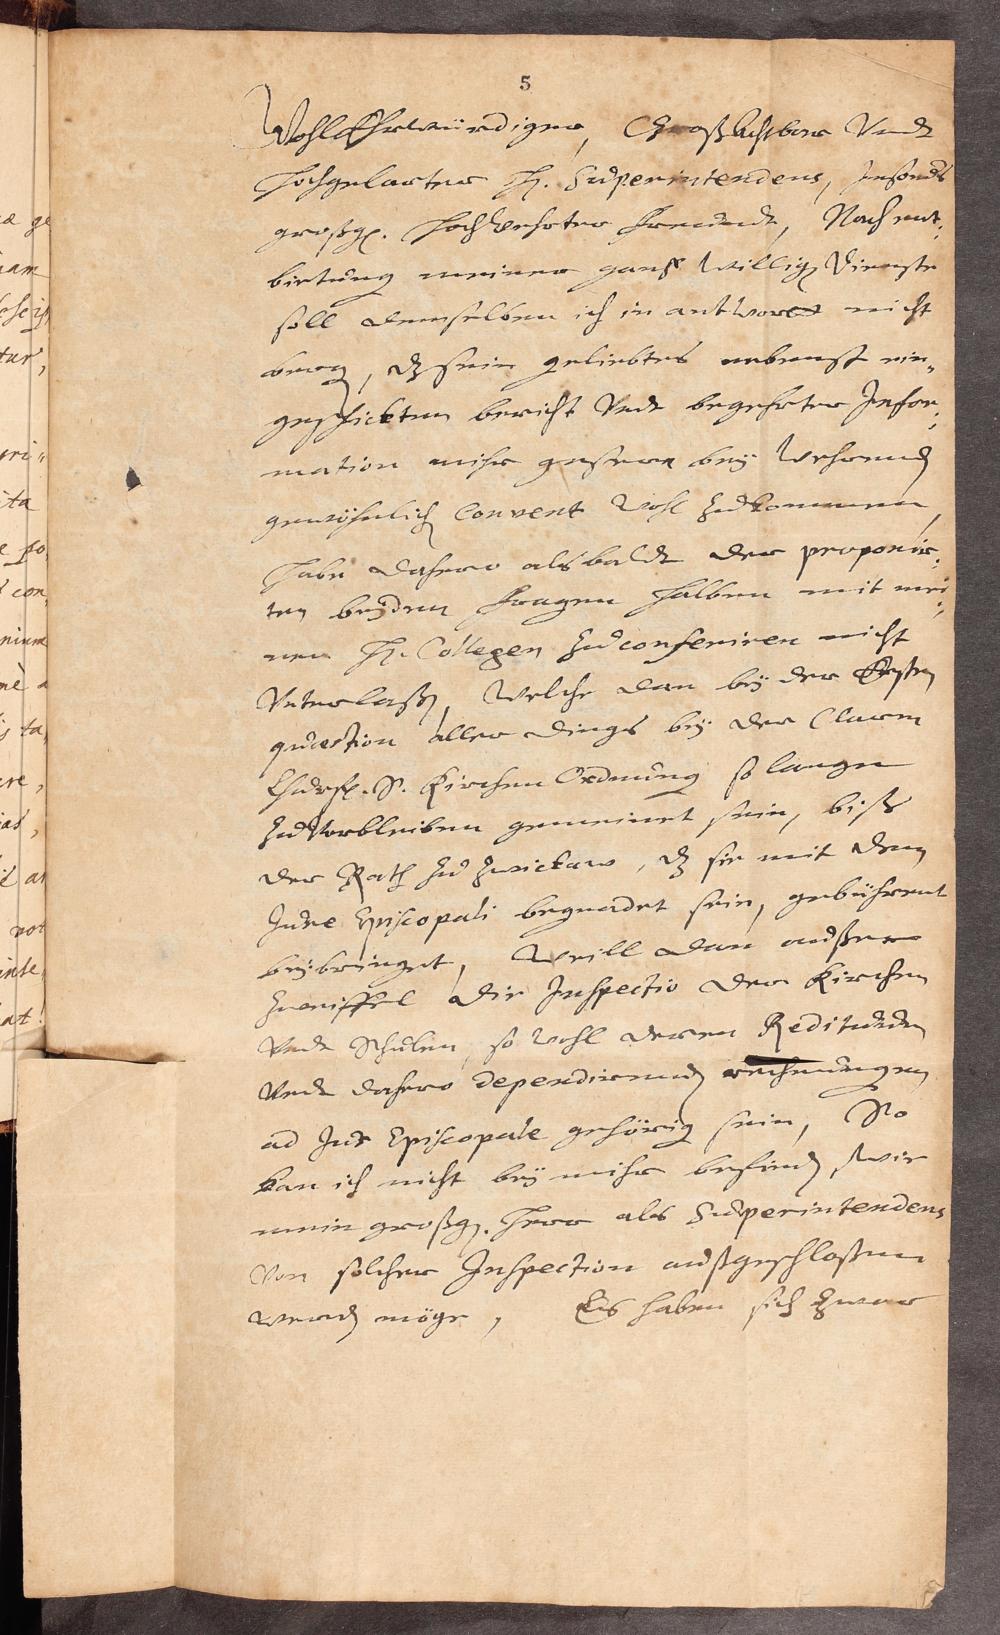 5
WohlEhrwürdiger, Großachtbar Vndt
Hochgelarter H. Superintendens, Insonds
großg. Hochgeehrter Freundt, Nach ent,
bietung meiner gantz willigen Dienste
soll demselben ich in antwort nicht
bergen, dz sein geliebtes nebenst ein„
geschickten bericht Vndt begehrter Infor,
mation mihr gestern bey wehrenden
gewöhnlich Convent wohl zukommen,
habe dahero alsbaldt der proponir,
ten beyden Fragen halben mit mei,
nen H. Collegen zu conferiren nicht
Vnterlaßen, Welche dan bey der Ersten
quaestion aller dings bey der Claren
Churf. S. Kirchen Ordnung so lange
zu Vorbleiben gemeinet sein, biß
der Rath zu Zwickaw, dz sie mit dem
Jure Episcopali begnadet sein, gebührent
beybringet, Weill dan außer
Zweiffel die Inspectio der Kirchen
Vndt Schulen, so wohl deren Redituum
Vndt dahero dependirenden rechnungen
ad Jus Episcopale gehörig sein, So
kan ich nicht bey mihr befinden, wie
mein großg. Herr als Superintendens
Von solcher Inspection außgeschloßen
werden möge, Es haben sich zwar